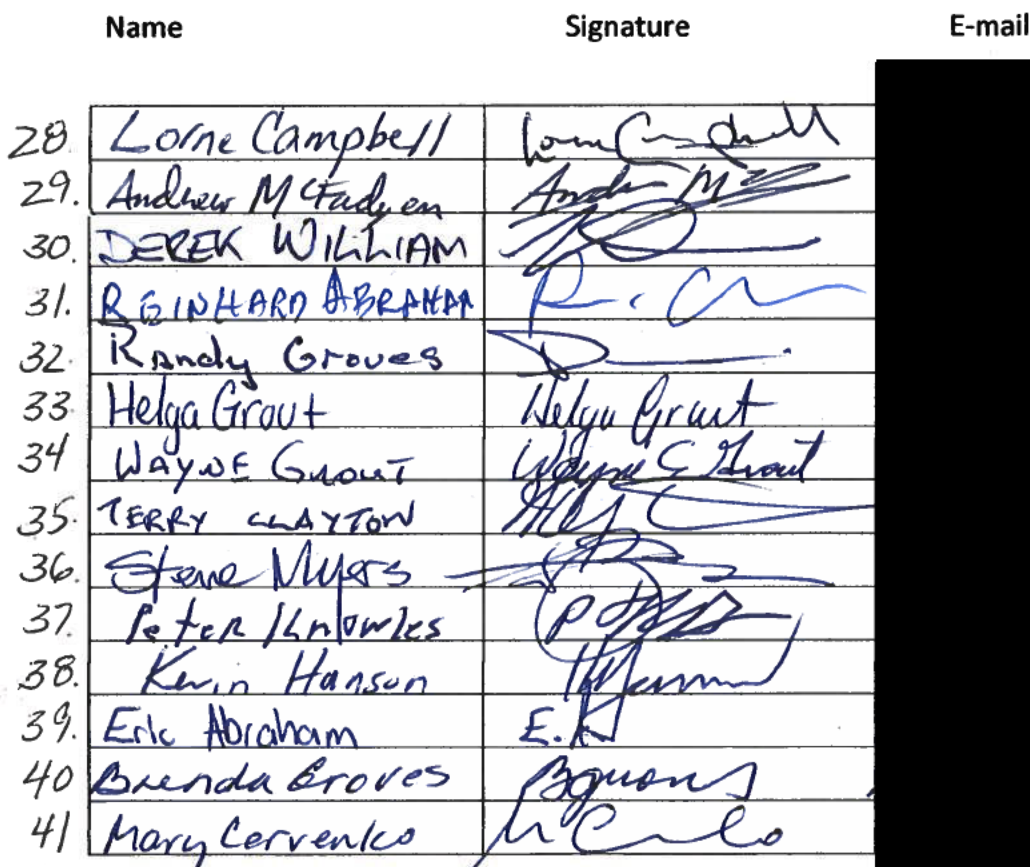 Name Signature E-mail
28. Lorne Campbell Lorne Campbell
29. Andrew McFadyen
30. DEREK WILLIAM
31. REINHARD ABRAHAM
32. Randy Groves
33. Helga Grout Helga Grout
34 WAYNE GROUT Wayne E Grout
35. TERRY CLAYTON
36. Steve Myers
37. Peter Knowles
38. Kevin Hanson
39. Eric Abraham E.A
40 Brenda Groves
41 Mary Cervenko